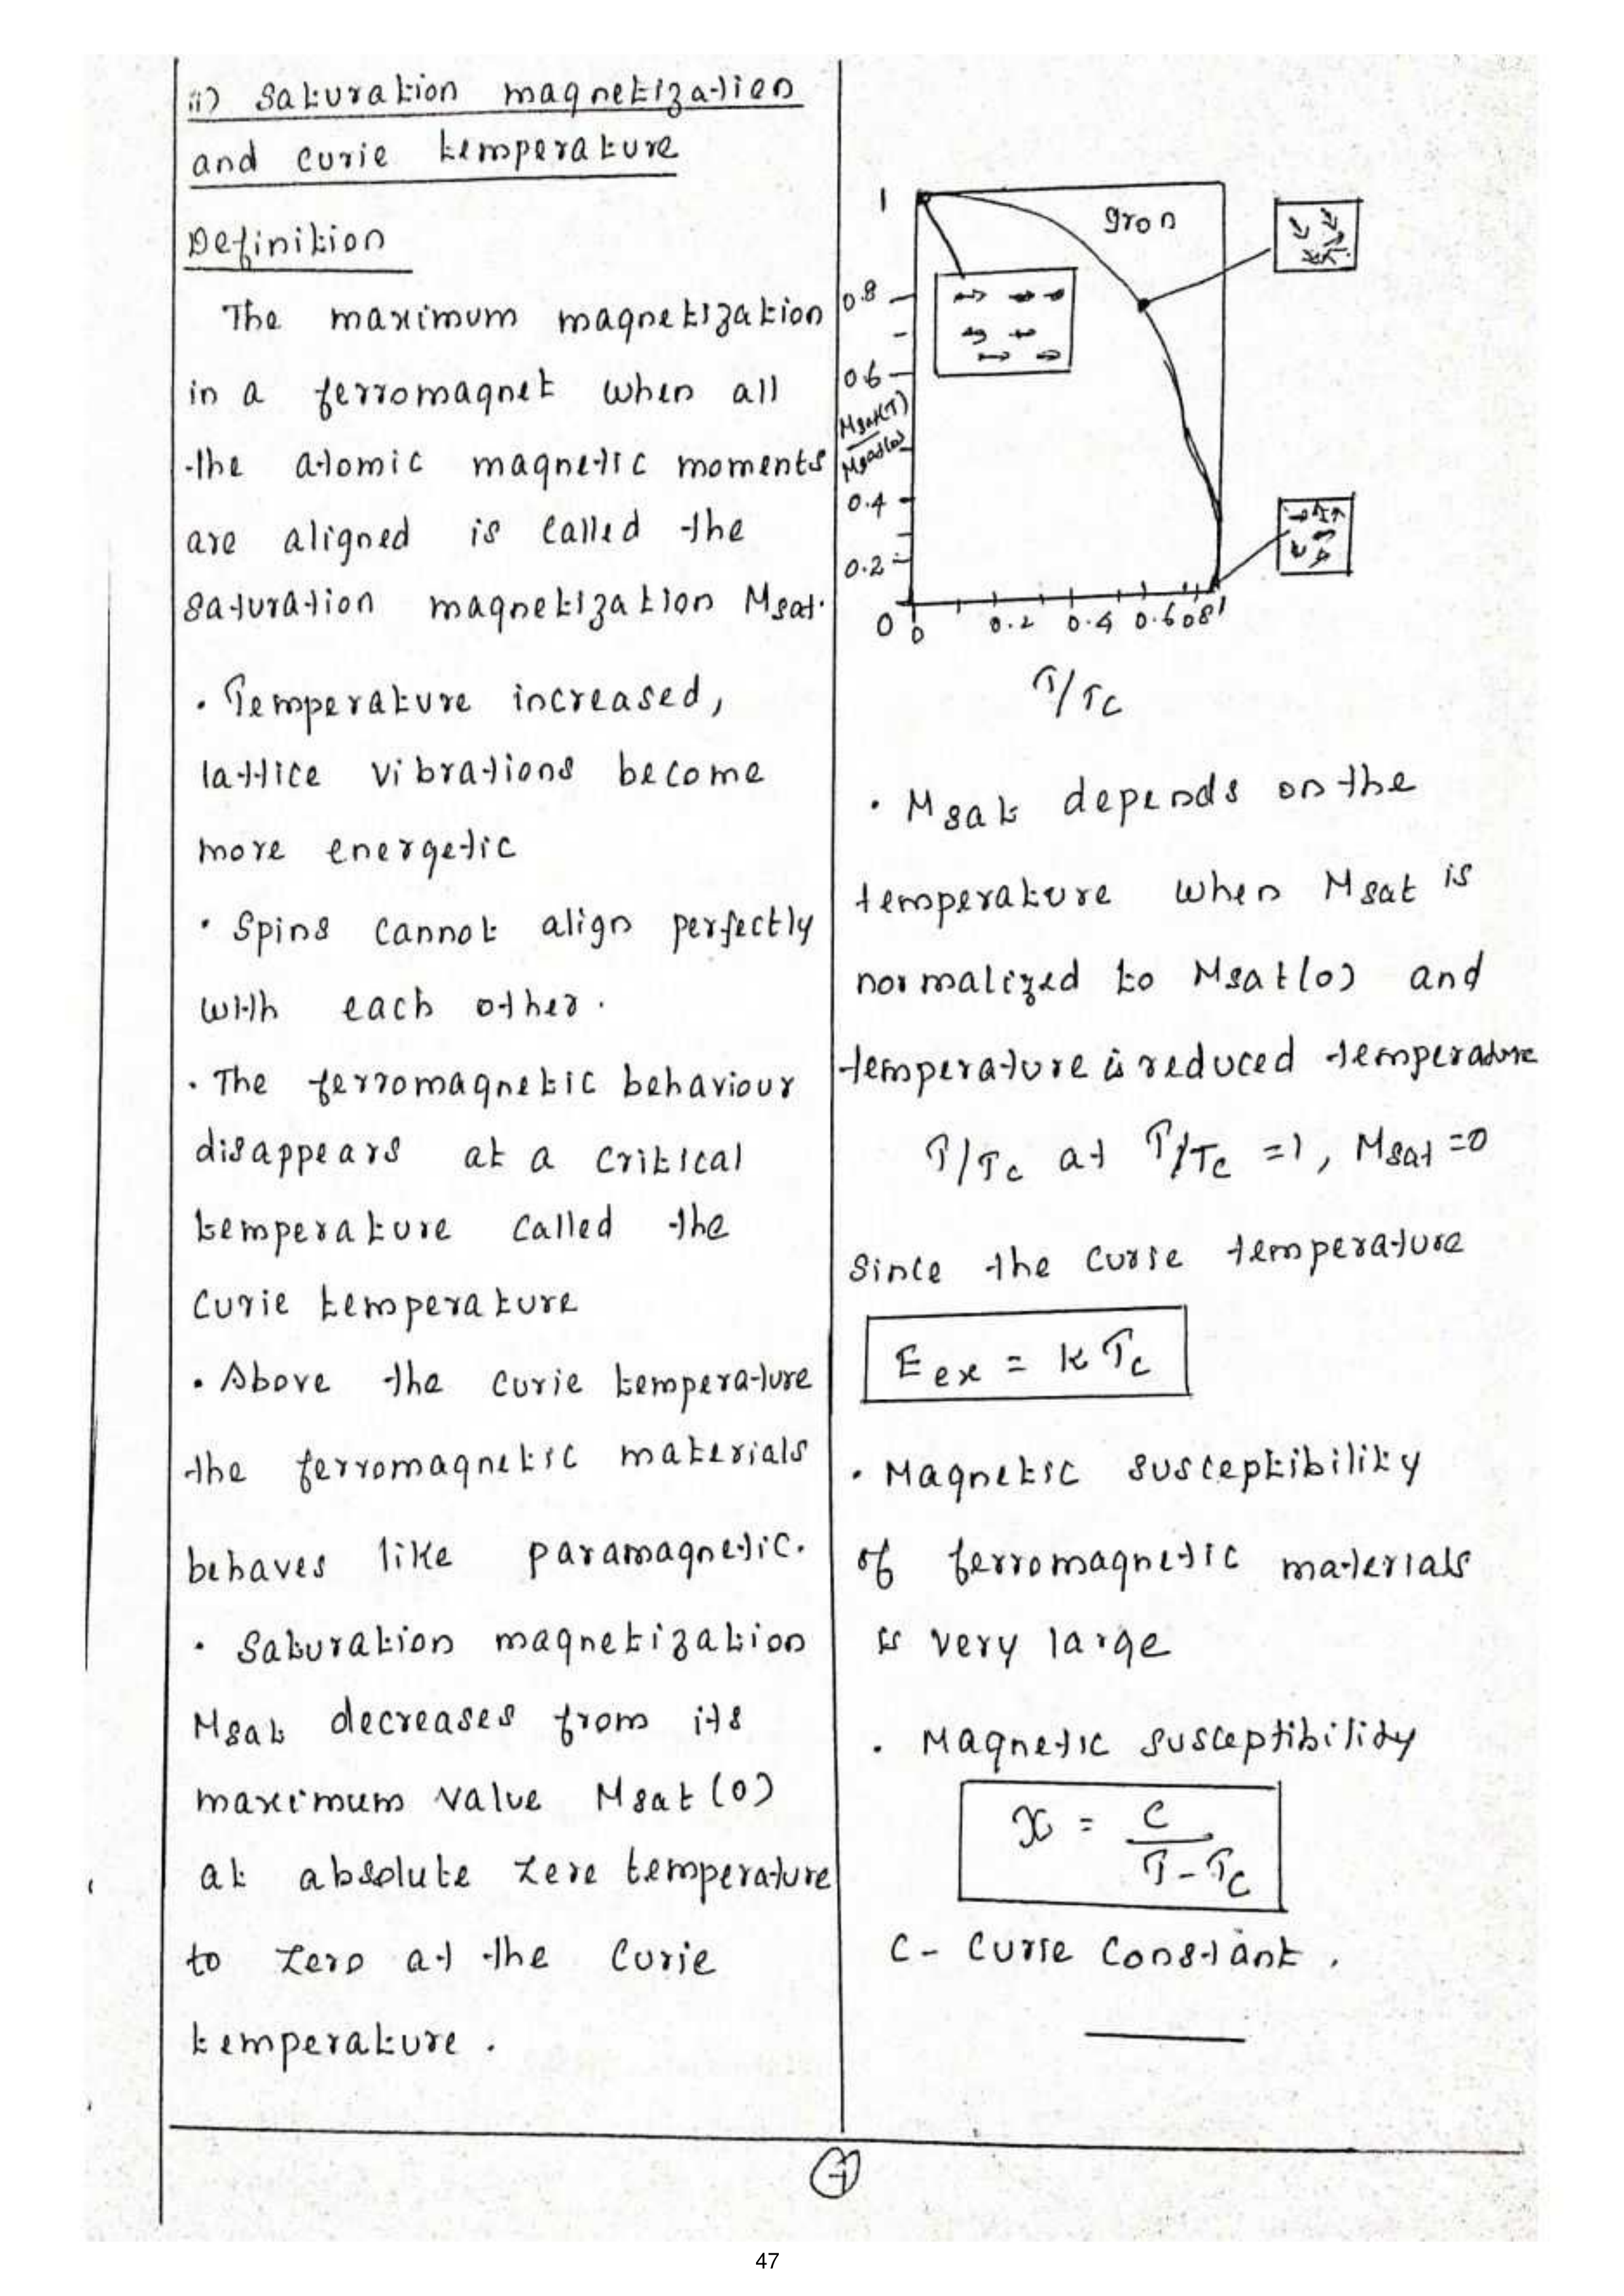 ii) Saturation magnetization
and curie temperature
Definition
The maximum magnetization
in a ferromagnet when all
the atomic magnetic moments
are aligned is called the
saturation magnetization Msat.
· Temperature increased,
lattice vibrations become
more energetic
· Spins cannot align perfectly
with each other.
· The ferromagnetic behaviour
disappears at a critical
temperature called the
Curie temperature
· Above the curie temperature
the ferromagnetic materials
behaves like paramagnetic.
· Saturation magnetization
Msat decreases from its
maximum value Msat (0)
at absolute zero temperature
to zero at the Curie
temperature.
1
Iron
0.8
0.6
Msat(T)
Msat(0)
0.4
0.2
0
0 0.2 0.4 0.6 08 1
T/Tc
· Msat depends on the
temperature when Msat is
normalized to Msat(0) and
temperature is reduced temperature
T/Tc at T/Tc =1, Msat =0
Since the Curie temperature
Eex = kTc
· Magnetic susceptibility
of ferromagnetic materials
is very large
· Magnetic susceptibility
χ = C
T - Tc
C - Curie Constant.
47